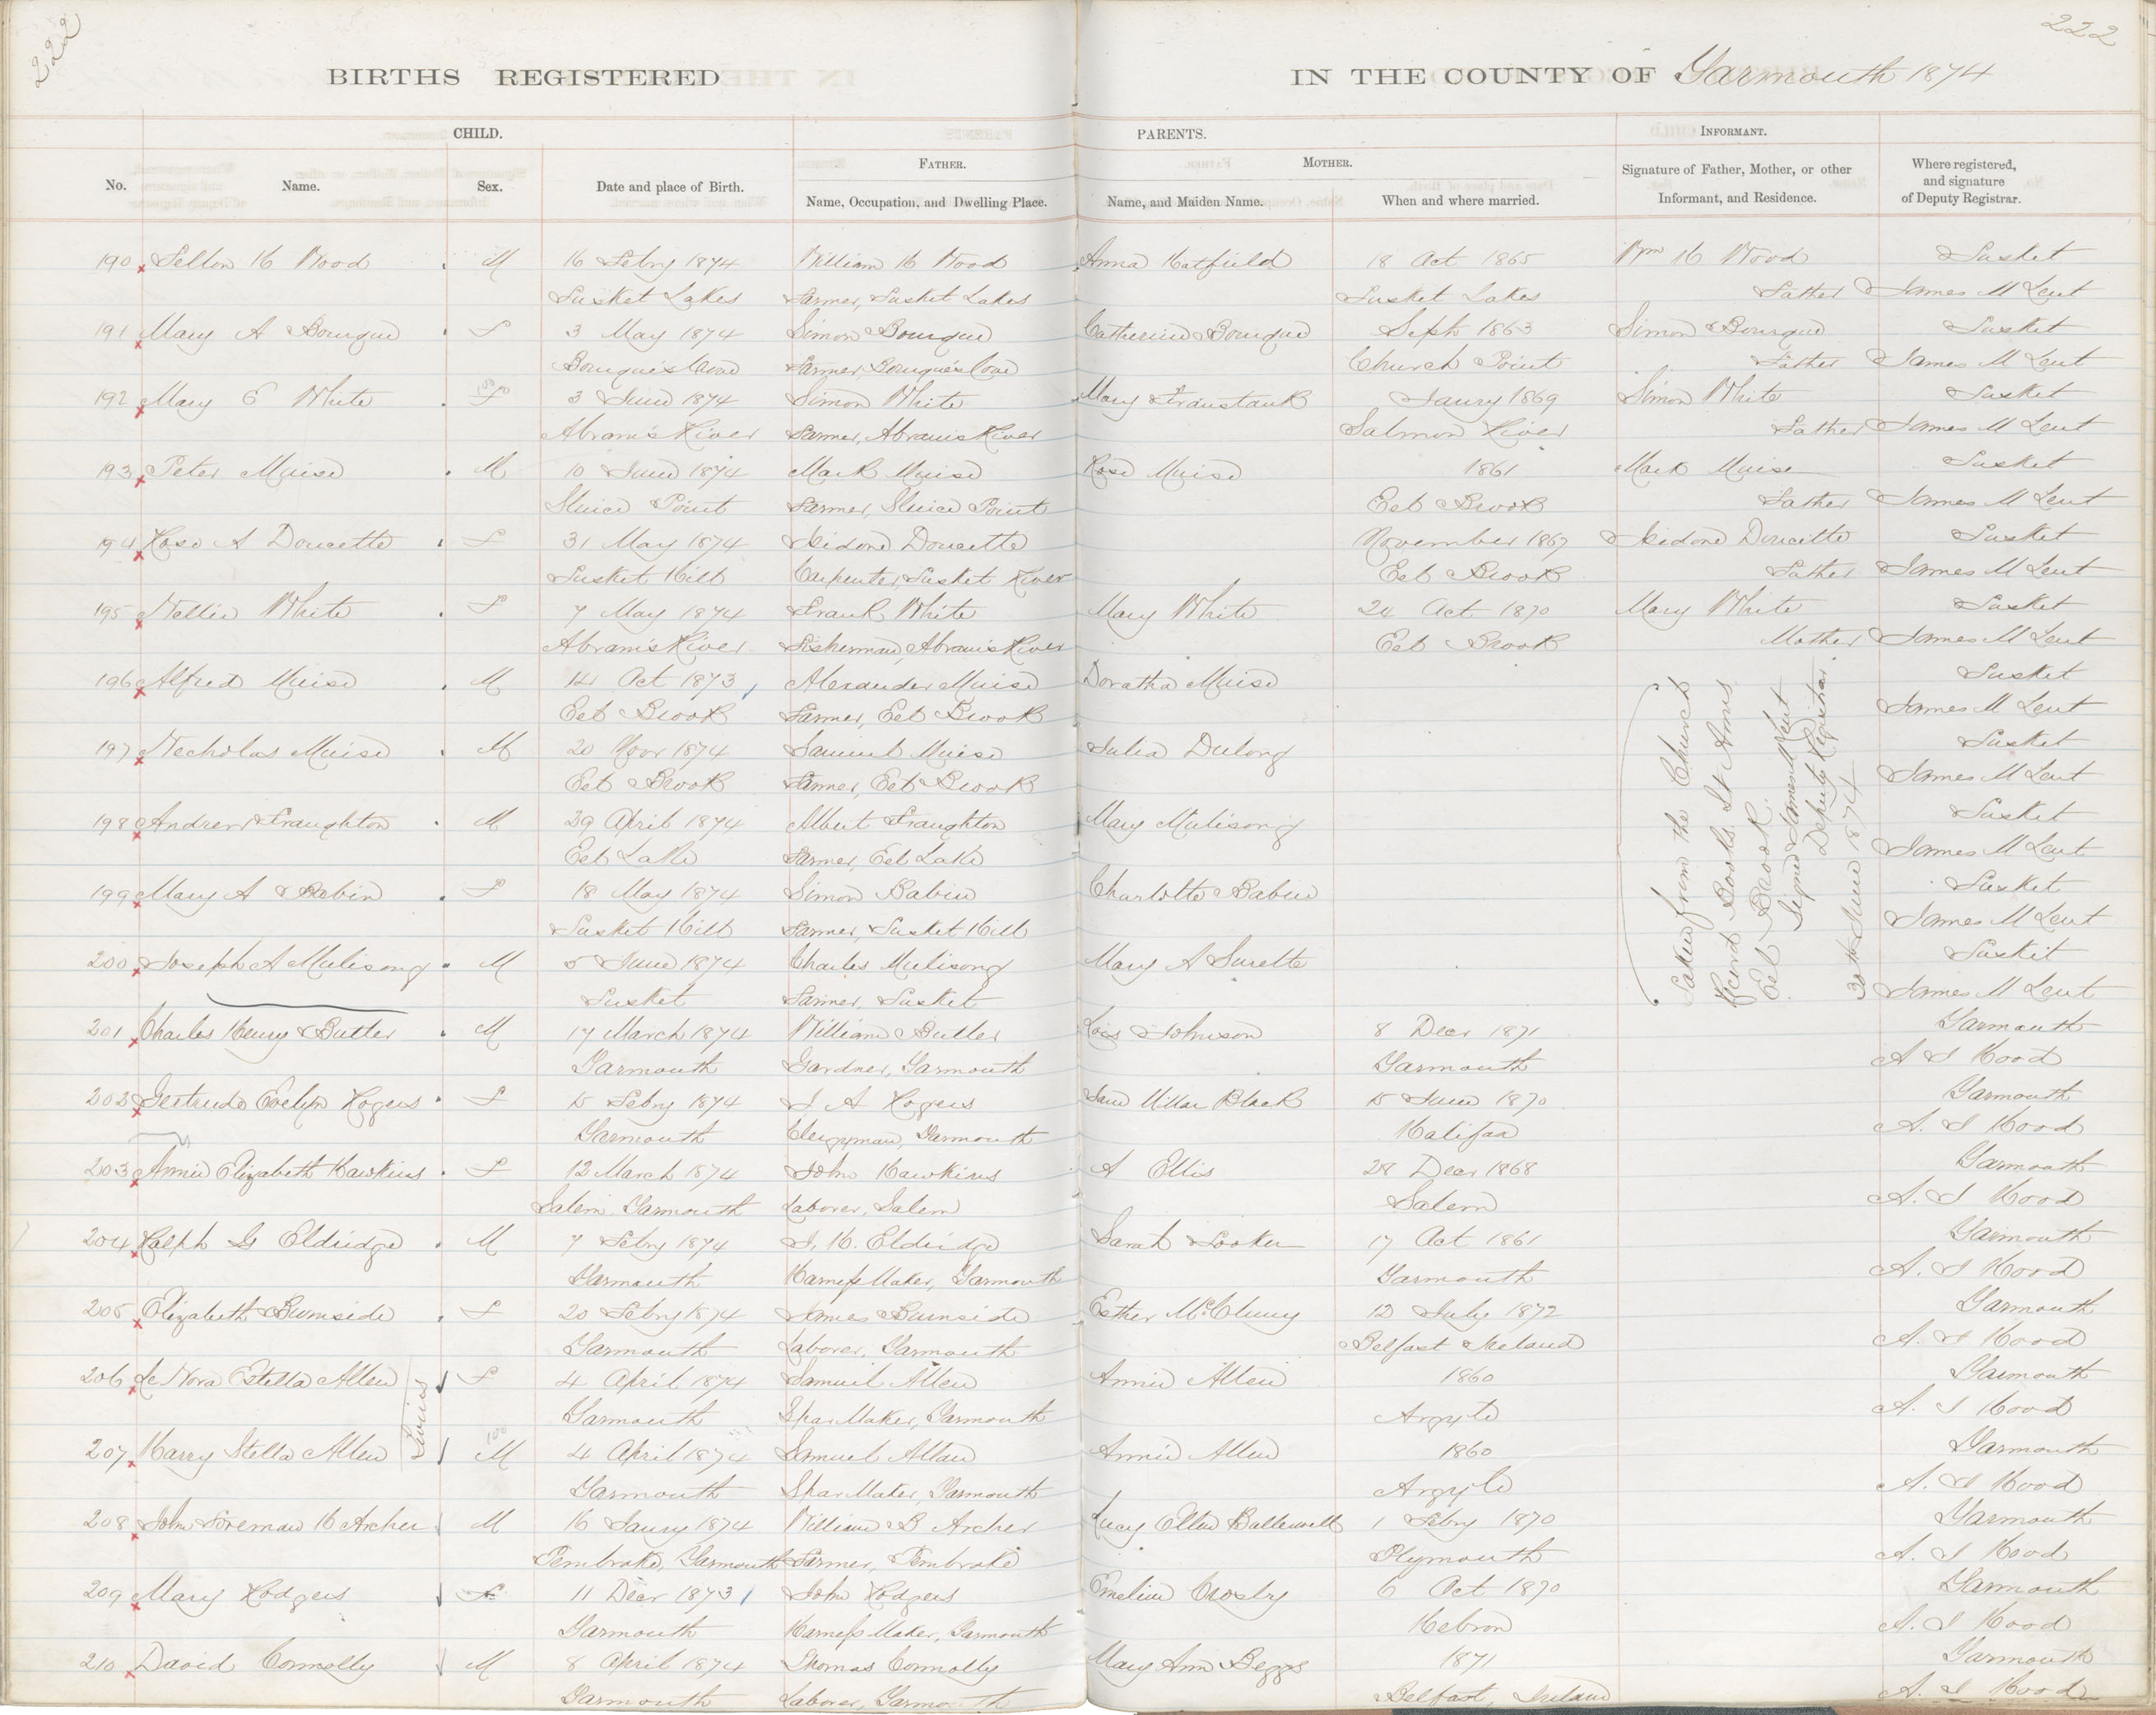 222
222
BIRTHS REGISTERED IN THE COUNTY OF Yarmouth 1874
CHILD. PARENTS. INFORMANT.
FATHER. MOTHER.
No. Name. Sex. Date and place of Birth. Name, Occupation, and Dwelling Place. Name, and Maiden Name. When and where married. Signature of Father, Mother, or other Informant, and Residence. Where registered, and signature of Deputy Registrar.
190 H Wood M 16 Febry 1874 William H Wood Anna Hatfield 18 Oct 1865 Wm H Wood Tusket
Tusket Lakes Farmer, Tusket Lakes Tusket Lakes Father James M Lent
191 Mary A Bourque F 3 May 1874 Simon Bourque Catherine Bourque Sept 1863 Simon Bourque Tusket
Bourque's Cove Farmer, Bourque's Cove Church Point Father James M Lent
192 Mary E White F 3 June 1874 Simon White Mary Jany 1869 Simon White Tusket
Abram's River Farmer, Abram's River Salmon River Father James M Lent
193 Peter Muise M 10 June 1874 Mark Muise Rose Muise 1861 Mark Muise Tusket
Sluice Point Farmer, Sluice Point Eel Brook Father James M Lent
194 Rose A Doucette F 31 May 1874 Isidore Doucette November 1867 Isidore Doucette Tusket
Tusket Hill Carpenter, Tusket River Eel Brook Father James M Lent
195 Nellie White F 7 May 1874 Frank White Mary White 24 Oct 1870 Mary White Tusket
Abram's River Fisherman, Abram's River Eel Brook Mother James M Lent
196 Alfred Muise M 14 Oct 1873 Alexander Muise Doratha Muise Tusket
Eel Brook Farmer, Eel Brook James M Lent
197 Necholas Muise M 20 Novr 1874 Samuel Muise Julia Dulong Tusket
Eel Brook Farmer, Eel Brook James M Lent
198 Andrew Fraughton M 29 April 1874 Albert Fraughton Mary Mulisong Tusket
Eel Lake Farmer, Eel Lake James M Lent
199 Mary A Babin F 18 May 1874 Simon Babin Charlotte Babin Tusket
Tusket Hill Farmer, Tusket Hill James M Lent
200 Joseph A Mulisong M 5 June 1874 Charles Mulisong Mary A Surette Tusket
Tusket Farmer, Tusket James M Lent
Taken from the Church
Record Books St Anns
Eel Brook.
Signed James M Lent
Deputy Registrar
30th June 1874
201 Charles Henry Butler M 17 March 1874 William Butler Lois Johnson 8 Decr 1871 Yarmouth
Yarmouth Gardner, Yarmouth Yarmouth A J Hood
202 Gertrude Evelyn Rogers F 15 Febry 1874 J A Rogers Jane Millar Black 15 June 1870 Yarmouth
Yarmouth Clergyman, Yarmouth Halifax A. J Hood
203 Annie Elizabeth Hawkins F 12 March 1874 John Hawkins A Ellis 28 Decr 1868 Yarmouth
Salem Yarmouth Laborer, Salem Salem A. J Hood
204 Ralph G Eldridge M 7 Febry 1874 J. H. Eldridge Sarah Tooker 17 Oct 1861 Yarmouth
Yarmouth Harness Maker, Yarmouth Yarmouth A. J Hood
205 Elizabeth Burnside F 20 Febry 1874 James Burnside Esther McCluny 12 July 1872 Yarmouth
Yarmouth Laborer, Yarmouth Belfast Ireland A. J Hood
206 Le Nora Estella Allen Twins F 4 April 1874 Samuel Allen Annie Allen 1860 Yarmouth
Yarmouth Spar Maker, Yarmouth Argyle A. J Hood
207 Harry Stella Allen M 4 April 1874 Samuel Allan Annie Allen 1860 Yarmouth
Yarmouth Spar Maker, Yarmouth Argyle A. J Hood
208 John Foreman H Archer M 16 Jany 1874 William B Archer Lucy Ellen 1 Febry 1870 Yarmouth
Pembroke, Yarmouth Farmer, Pembroke Plymouth A. J Hood
209 Mary Rodgers F 11 Decr 1873 John Rodgers Emeline Crosby 6 Oct 1870 Yarmouth
Yarmouth Harness Maker, Yarmouth Hebron A. J Hood
210 David Connolly M 8 April 1874 Thomas Connolly Mary Ann Beggs 1871 Yarmouth
Yarmouth Laborer, Yarmouth Belfast, Ireland A. J Hood